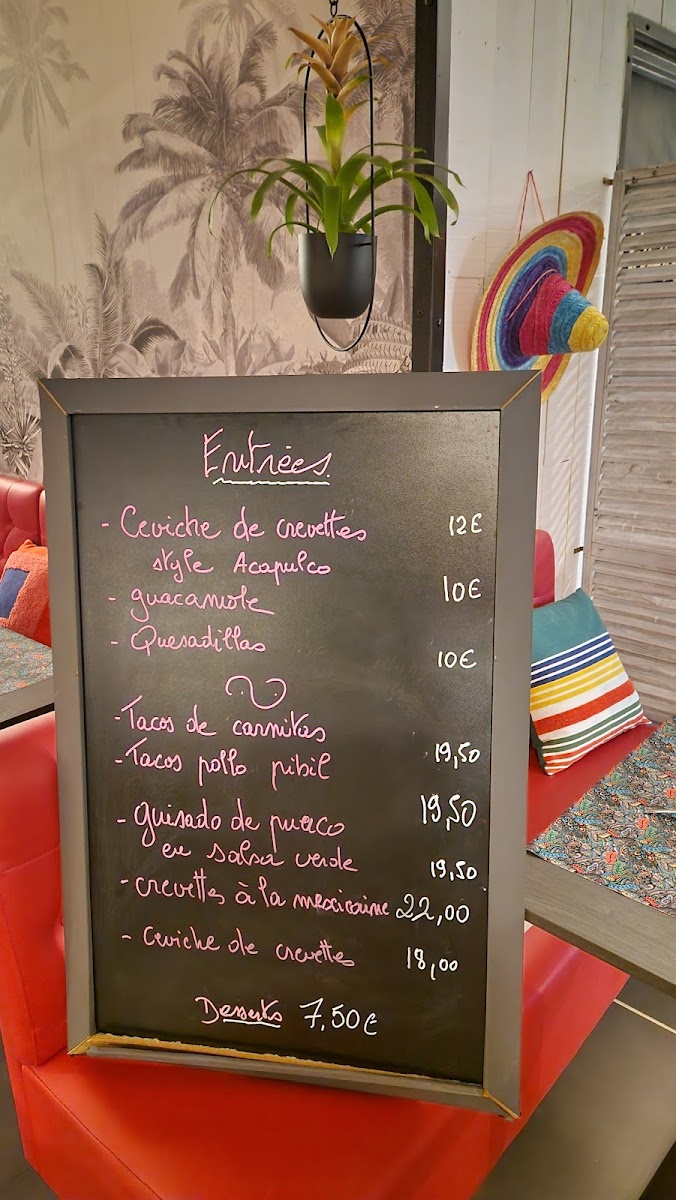 Entrées
- Ceviche de crevettes 12€
style Acapulco
- guacamole 10€
- Quesadillas 10€
- Tacos de carnitas
- Tacos pollo pibil 19,50
- guisado de puerco 19,50
en salsa verde 19,50
- crevettes à la mexicaine 22,00
- Ceviche de crevettes 18,00
Desserts 7,50€